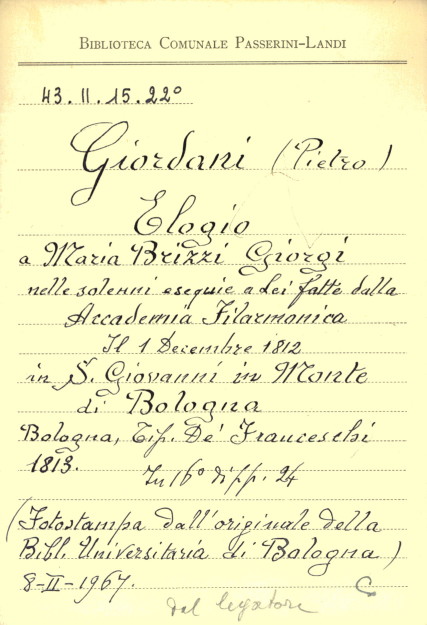 BIBLIOTECA COMUNALE PASSERINI-LANDI
43. II. 15. 22°
Giordani (Pietro)
Elogio
a Maria Brizzi Giorgi
nelle solenni esequie a Lei fatte dalla
Accademia Filarmonica
Il 1 Decembre 1812
in S. Giovanni in Monte
di Bologna
Bologna, Tip. De' Franceschi
1813. In 16° di pp. 24
(Fotostampa dall'originale della
Bibl. Universitaria di Bologna)
8-II-1967. C
dal legatore